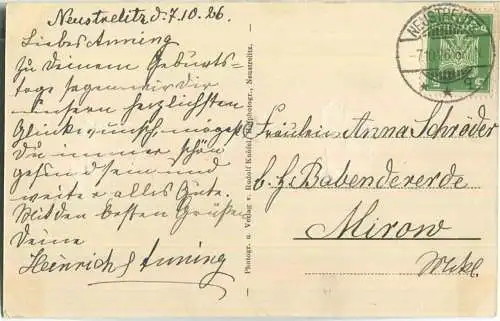 Neustrelitz, d. 7.10.26.
Liebes Anning
Zu Deinem Geburts-
tage sagen wir Dir
unsern herzlichsten
Glückwunsch, mögest
Du immer schön
gesund sein und
weiter alles Gute.
Mit den besten Grüßen
Deine
Heinrich Anning
Photogr. u. Verlag v. Rudolf Neustrelitz.
NEUSTRELITZ
Fräulein Anna Schröder
b. H. Babendererde
Mirow
Mekl.